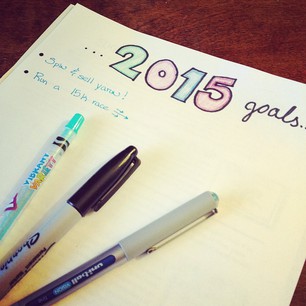 .... 2015 goals..
• Spin & sell yarn!
• Run a 15k race
Sharpie
uni-ball